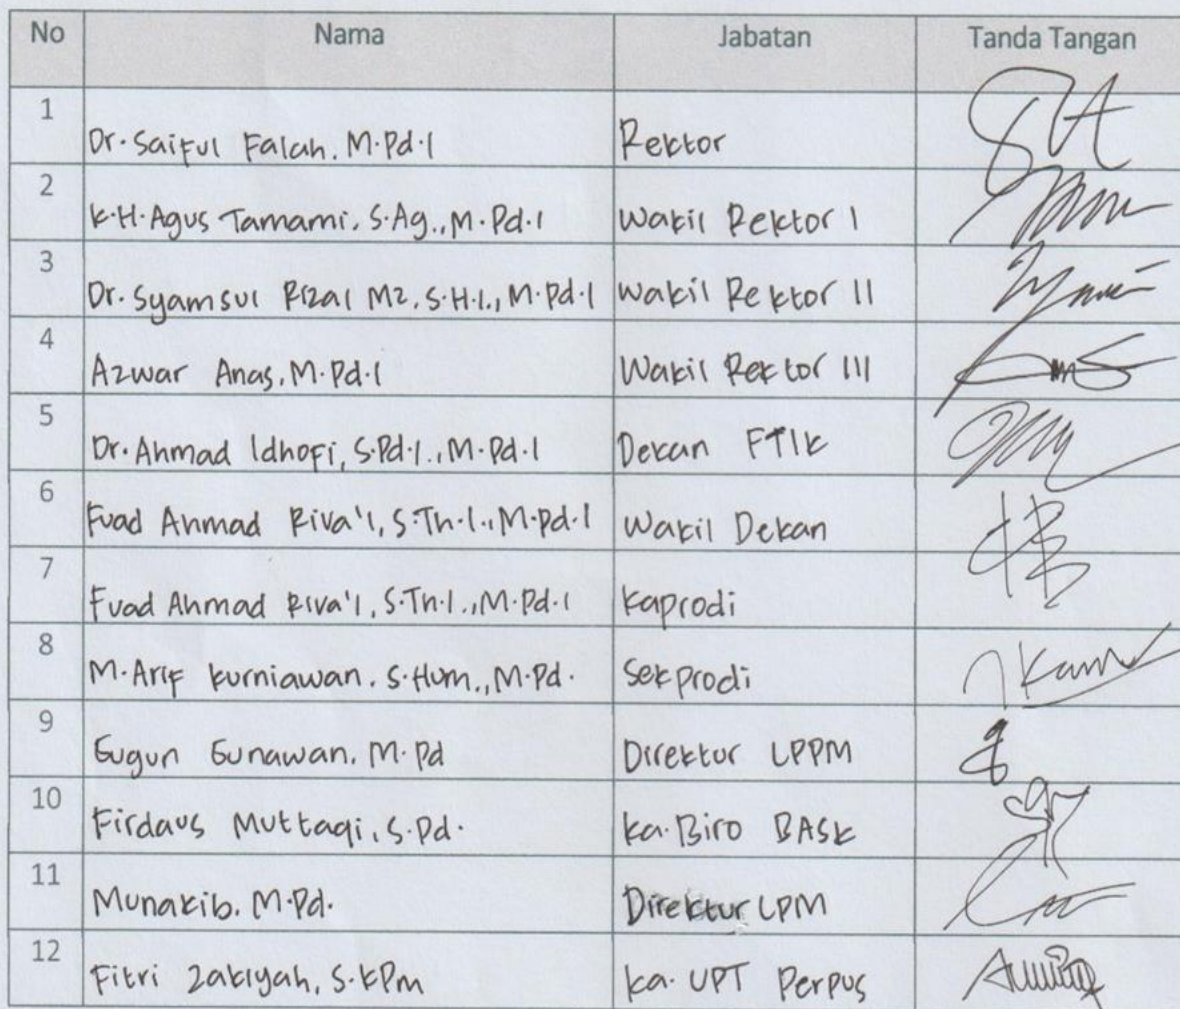 No Nama Jabatan Tanda Tangan
1 Dr. Saiful Falah, M.Pd.I Rektor
2 K.H. Agus Tamami, S.Ag., M.Pd.I Wakil Rektor I
3 Dr. Syamsul Rizal Mz, S.H.I., M.Pd.I Wakil Rektor II
4 Azwar Anas, M.Pd.I Wakil Rektor III
5 Dr. Ahmad Idhofi, S.Pd.I., M.Pd.I Dekan FTIK
6 Fuad Ahmad Riva'I, S.Th.I., M.Pd.I Wakil Dekan
7 Fuad Ahmad Riva'I, S.Th.I., M.Pd.I Kaprodi
8 M. Arif Kurniawan, S.Hum., M.Pd. Sekprodi
9 Gugun Gunawan, M.Pd Direktur LPPM
10 Firdaus Muttaqi, S.Pd. Ka. Biro BASK
11 Munakib, M.Pd. Direktur LPM
12 Fitri Zakiyah, S.KPm Ka. UPT Perpus